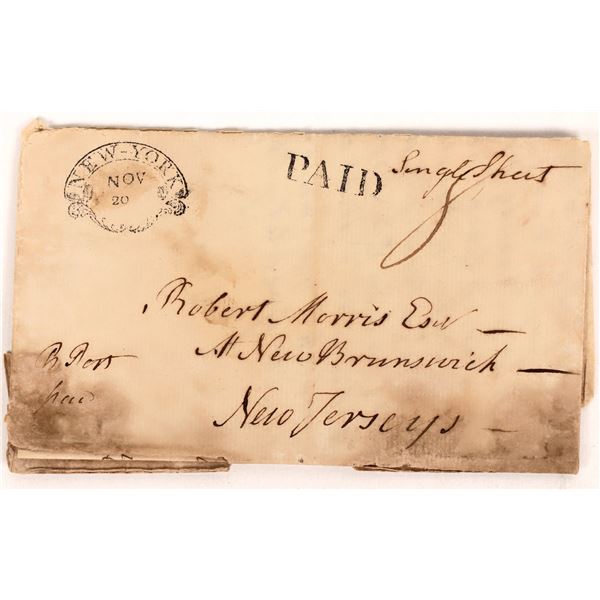 NEW-YORK
NOV
20
PAID
Single Sheet
Robert Morris Esqr
At New Brunswick
New Jerseys
Post